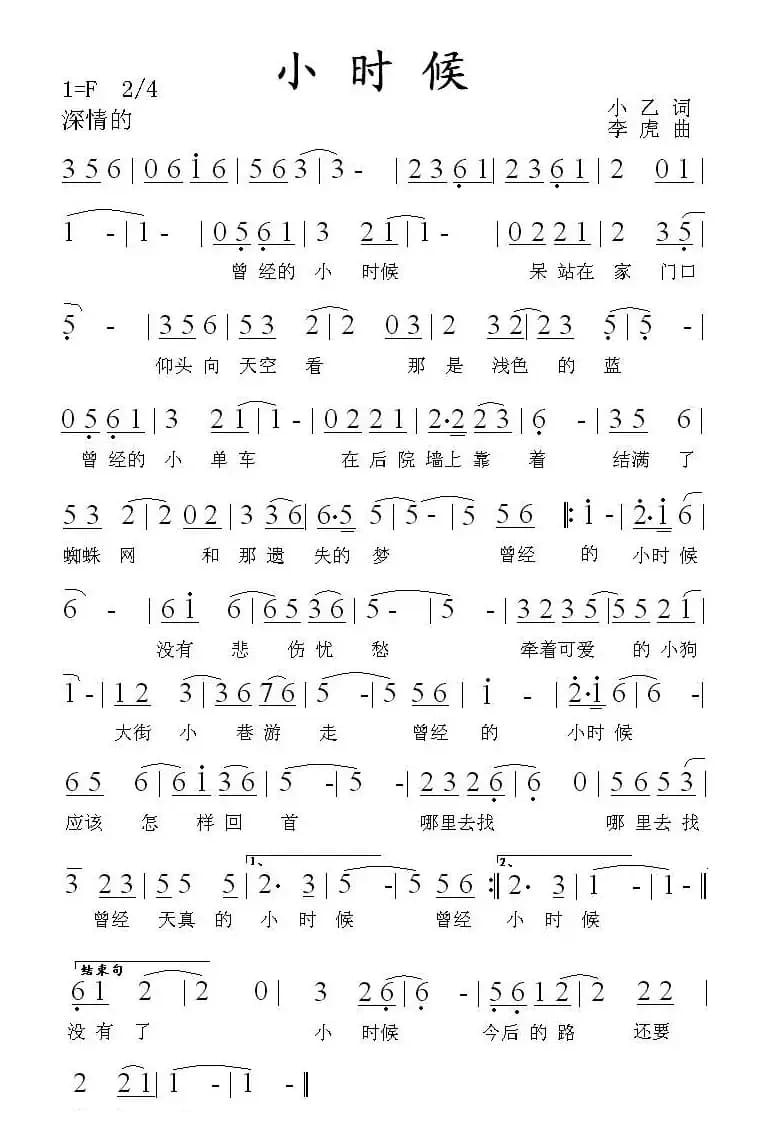 小时候
1=F 2/4
深情的
小乙词
李虎曲
3 5 6 | 0 6 i 6 | 5 6 3 | 3 - | 2 3 6 1 | 2 3 6 1 | 2 0 1 |
1 - | 1 - | 0 5 6 1 | 3 2 1 | 1 - | 0 2 2 1 | 2 3 5 |
曾经的小时候 呆站在家门口
5 - | 3 5 6 | 5 3 2 | 2 0 3 | 2 3 2 | 2 3 5 | 5 - |
仰头向天空看 那是浅色的蓝
0 5 6 1 | 3 2 1 | 1 - | 0 2 2 1 | 2· 2 2 3 | 6 - | 3 5 6 |
曾经的小单车 在后院墙上靠着 结满了
5 3 2 | 2 0 2 | 3 3 6 | 6· 5 5 | 5 - | 5 5 6 ‖: i - | 2· i 6 |
蜘蛛网 和那遗失的梦 曾经的小时候
6 - | 6 i 6 | 6 5 3 6 | 5 - | 5 - | 3 2 3 5 | 5 5 2 1 |
没有悲伤忧愁 牵着可爱的小狗
1 - | 1 2 3 | 3 6 7 6 | 5 - | 5 5 6 | i - | 2· i 6 | 6 - |
大街小巷游走 曾经的小时候
6 5 6 | 6 i 3 6 | 5 - | 5 - | 2 3 2 6 | 6 0 | 5 6 5 3 |
应该怎样回首 哪里去找 哪里去找
1、 2、
3 2 3 | 5 5 5 | 2· 3 | 5 - | 5 5 6 :‖ 2· 3 | 1 - | 1 - ‖
曾经天真的小时候 曾经小时候
结束句
6 1 2 | 2 0 | 3 2 6 | 6 - | 5 6 1 2 | 2 2 2 |
没有了 小时候 今后的路还要
2 2 1 | 1 - | 1 - ‖